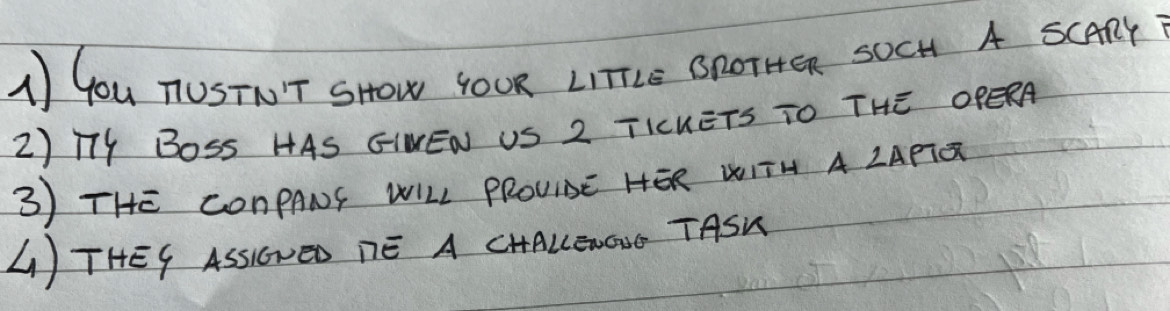 1) You MUSTN'T SHOW YOUR LITTLE BROTHER SUCH A SCARY
2) MY BOSS HAS GIVEN US 2 TICKETS TO THE OPERA
3) THE COMPANY WILL PROVIDE HER WITH A LAPTOP
4) THEY ASSIGNED ME A CHALLENGING TASK